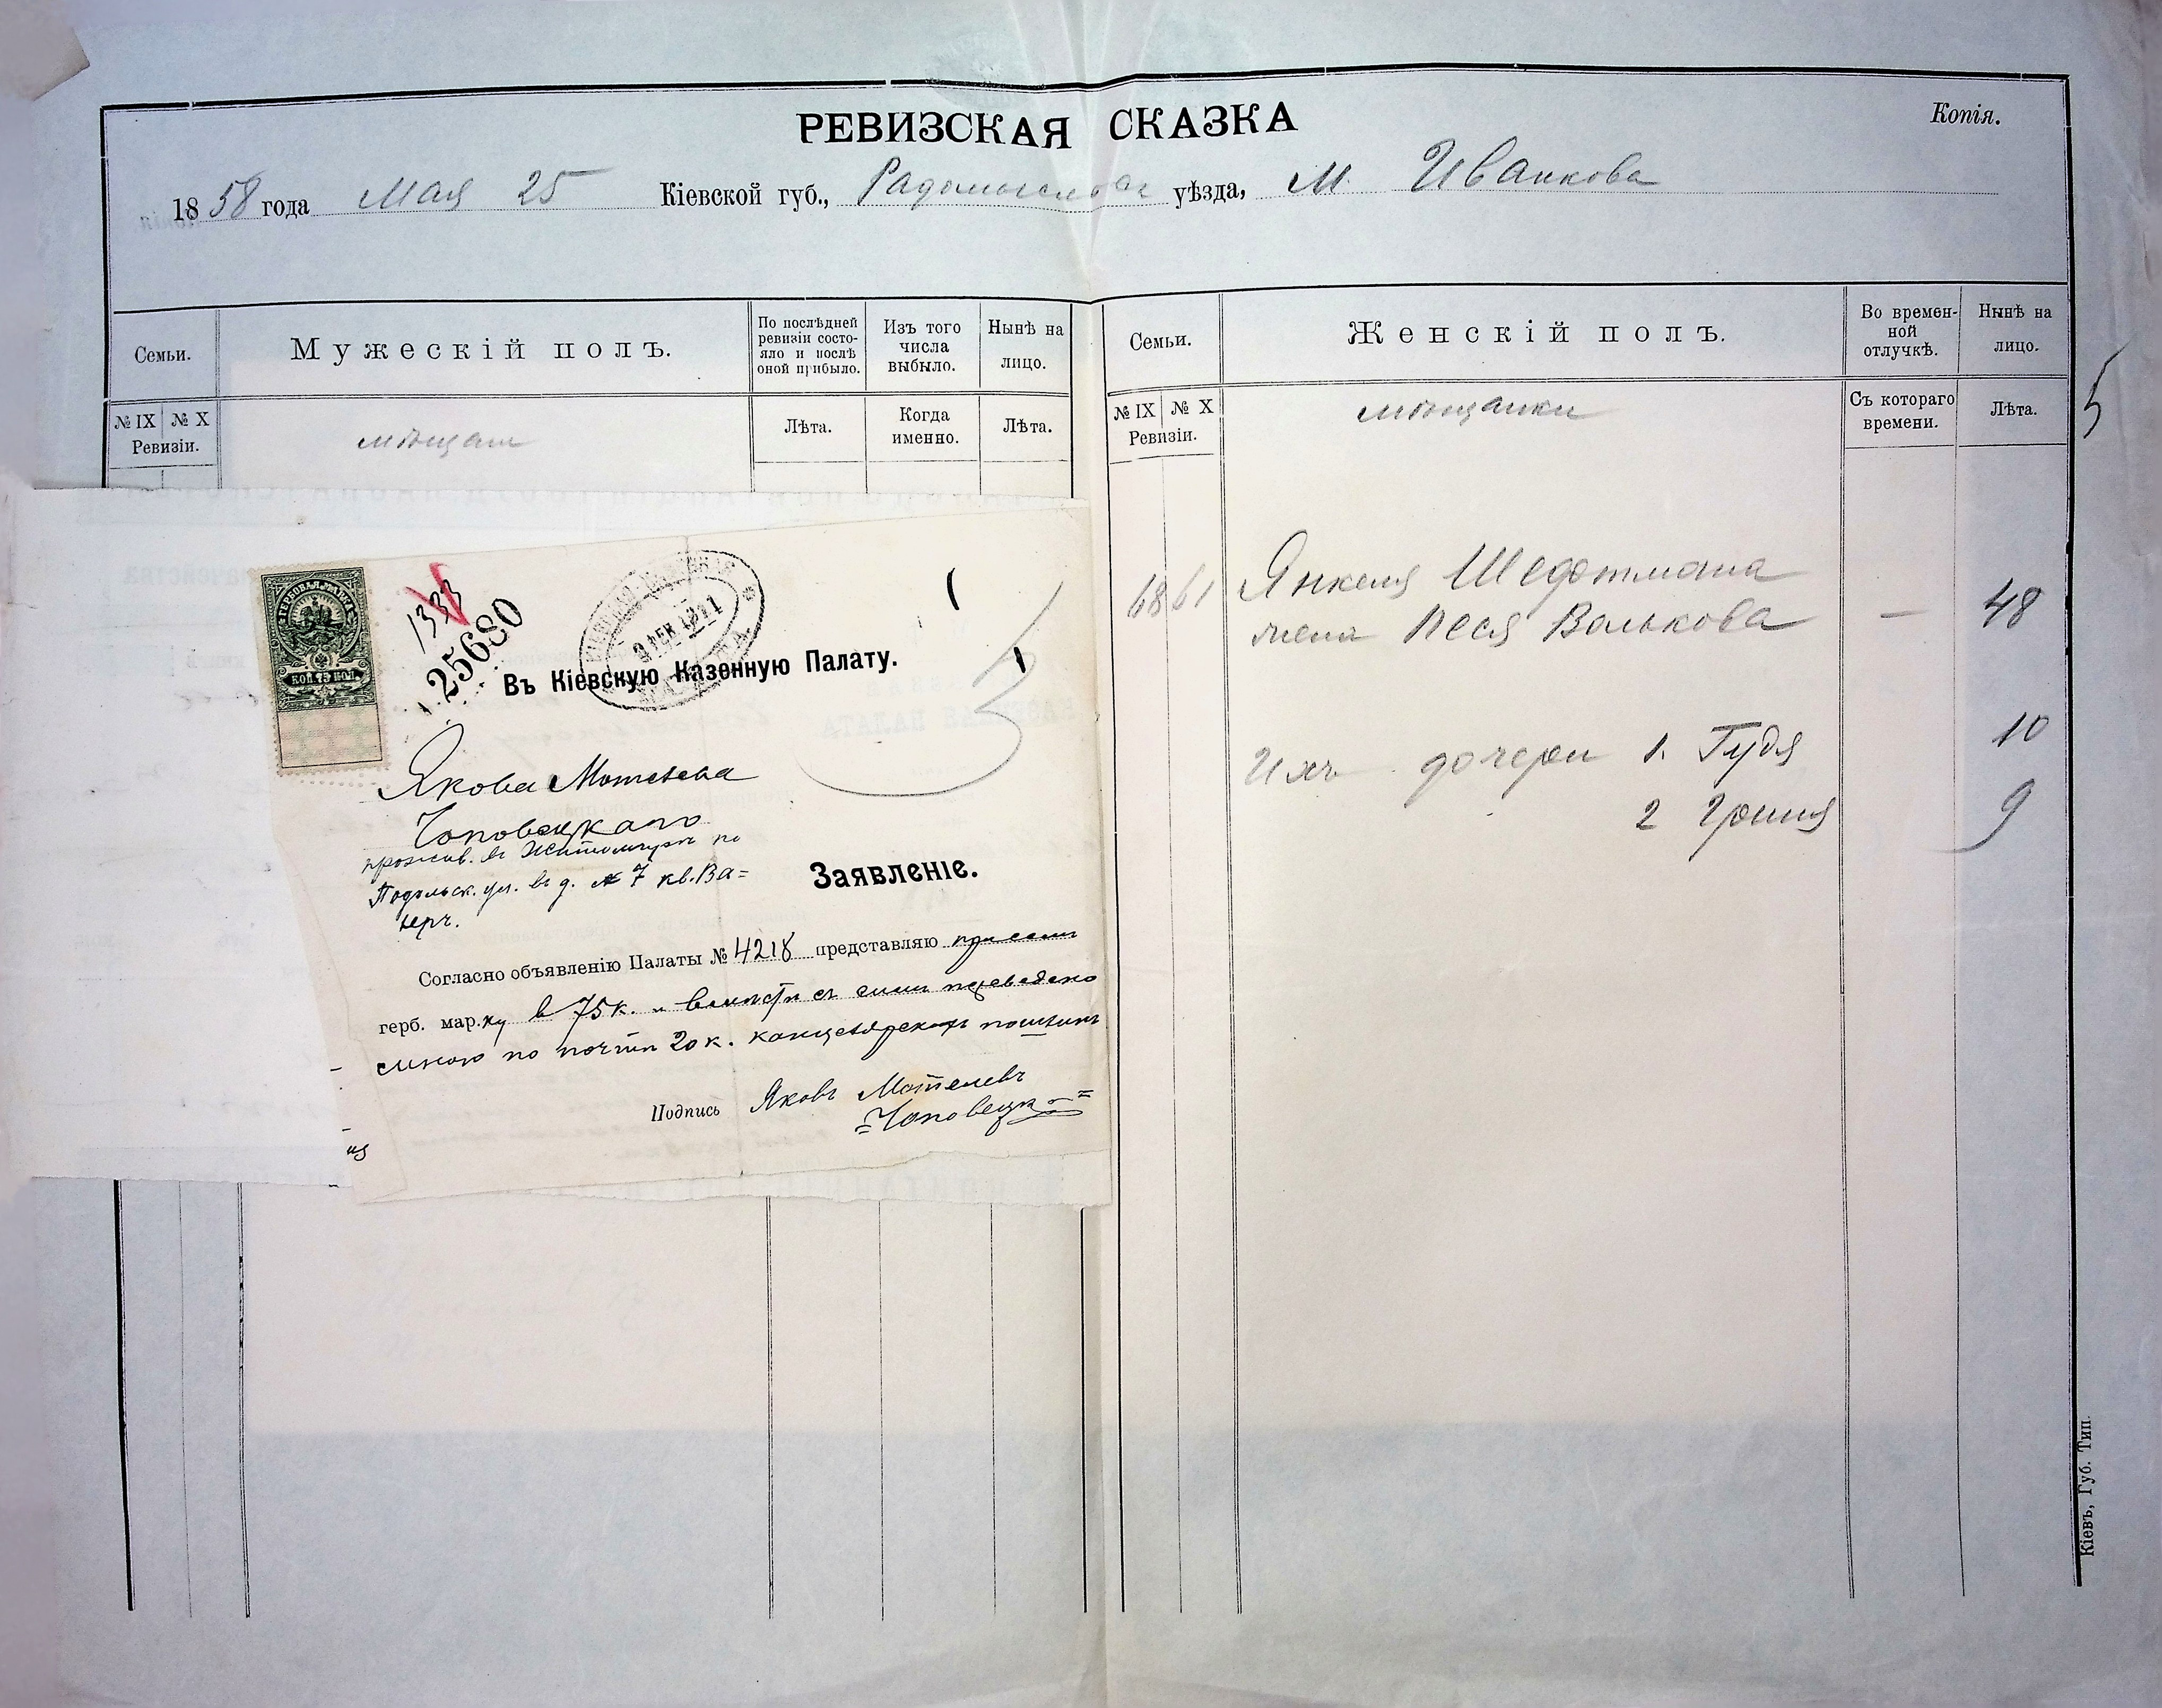 РЕВИЗСКАЯ СКАЗКА
Копія.
1858 года Мая 25 Кіевской губ., Радомысльскаг уѣзда, М. Иванкова
Семьи.
Мужескій полъ.
По послѣдней ревизіи состо-
яло и послѣ
оной прибыло.
Изъ того
числа
выбыло.
Нынѣ на
лицо.
№ IX № X
Ревизіи.
мѣщане
Лѣта.
Когда
именно.
Лѣта.
Семьи.
Женскій полъ.
Во времен-
ной
отлучкѣ.
Нынѣ на
лицо.
№ IX № X
Ревизіи.
мѣщанки
Съ котораго
времени.
Лѣта.
5
68 61 Янкеля
жена Песя Волькова — 48
Ихъ дочери 1. Гудя 10
2 9
КОП. 75 КОП.
1333
25680
Въ Кіевскую Казенную Палату.
Якова Мотелева
Чоповецкаго
прожив. въ Житомирѣ по
Подольск. ул. въ д. № 7 кв. Ва=
херъ.
Заявленіе.
Согласно объявленію Палаты № 4218 представляю при семъ
герб. мар.ку в 75 к. и вмѣстѣ съ симъ переведено
мною по почтѣ 20 к. канцелярскихъ пошлинъ
Подпись Яковъ Мотелевъ
=Чоповецк=
Кіевъ, Губ. Тип.